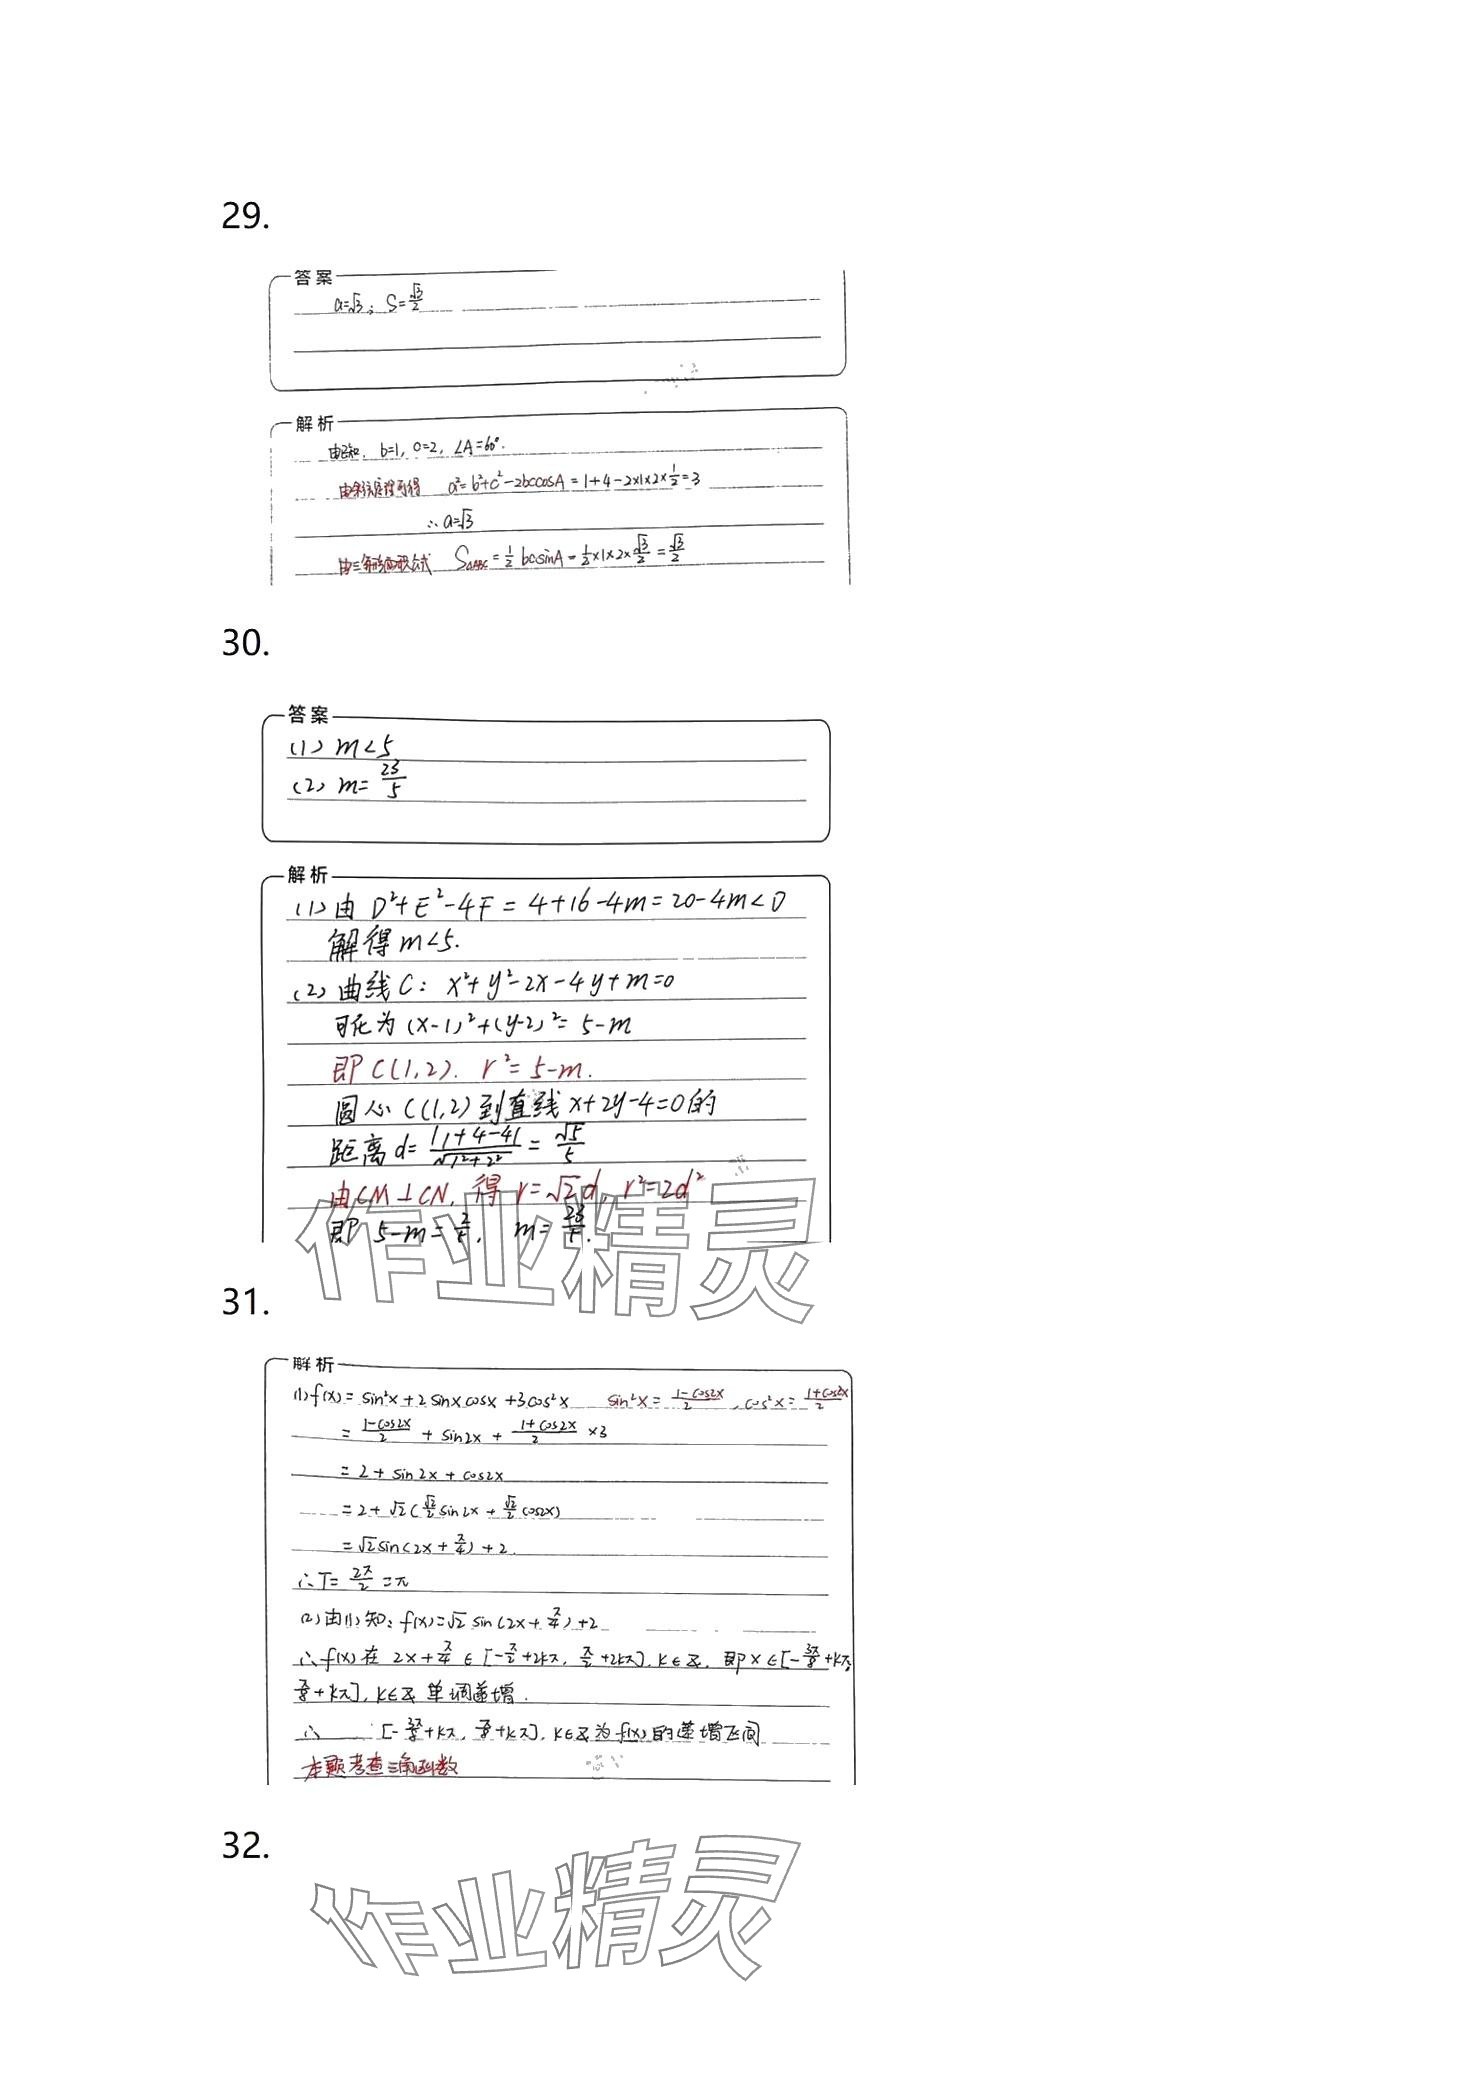 29.
答案
a=√3; S=√3/2
解析
由已知, b=1, c=2, ∠A=60°.
由余弦定理可得 a²=b²+c²-2bccosA=1+4-2×1×2×1/2=3
∴a=√3
由三角形面积公式 S△ABC=1/2 bcsinA=1/2×1×2×√3/2=√3/2
30.
答案
(1) m<5
(2) m=23/5
解析
(1)由 D²+E²-4F=4+16-4m=20-4m<0
解得 m<5.
(2)曲线C: x²+y²-2x-4y+m=0
可化为 (x-1)²+(y-2)²=5-m
即C(1,2). r²=5-m.
圆心C(1,2)到直线x+2y-4=0的
距离d=|1+4-4|/√1²+2²=√5/5
由CM⊥CN, 得 r=√2d, r²=2d²
即 5-m=2/5, m=23/5.
作业精灵
31.
解析
(1)f(x)=sin²x+2sinxcosx+3cos²x sin²x=1-cos2x/2, cos²x=1+cos2x/2
=1-cos2x/2+sin2x+1+cos2x/2×3
=2+sin2x+cos2x
=2+√2(√2/2sin2x+√2/2cos2x)
=√2sin(2x+π/4)+2
∴T=2π/2=π
(2)由(1)知: f(x)=√2sin(2x+π/4)+2
∴f(x)在 2x+π/4∈[-π/2+2kπ, π/2+2kπ], k∈Z, 即x∈[-3π/8+kπ,
π/8+kπ], k∈Z 单调递增.
∴ [-3π/8+kπ, π/8+kπ], k∈Z为f(x)的递增区间
本题考查三角函数
32.
作业精灵